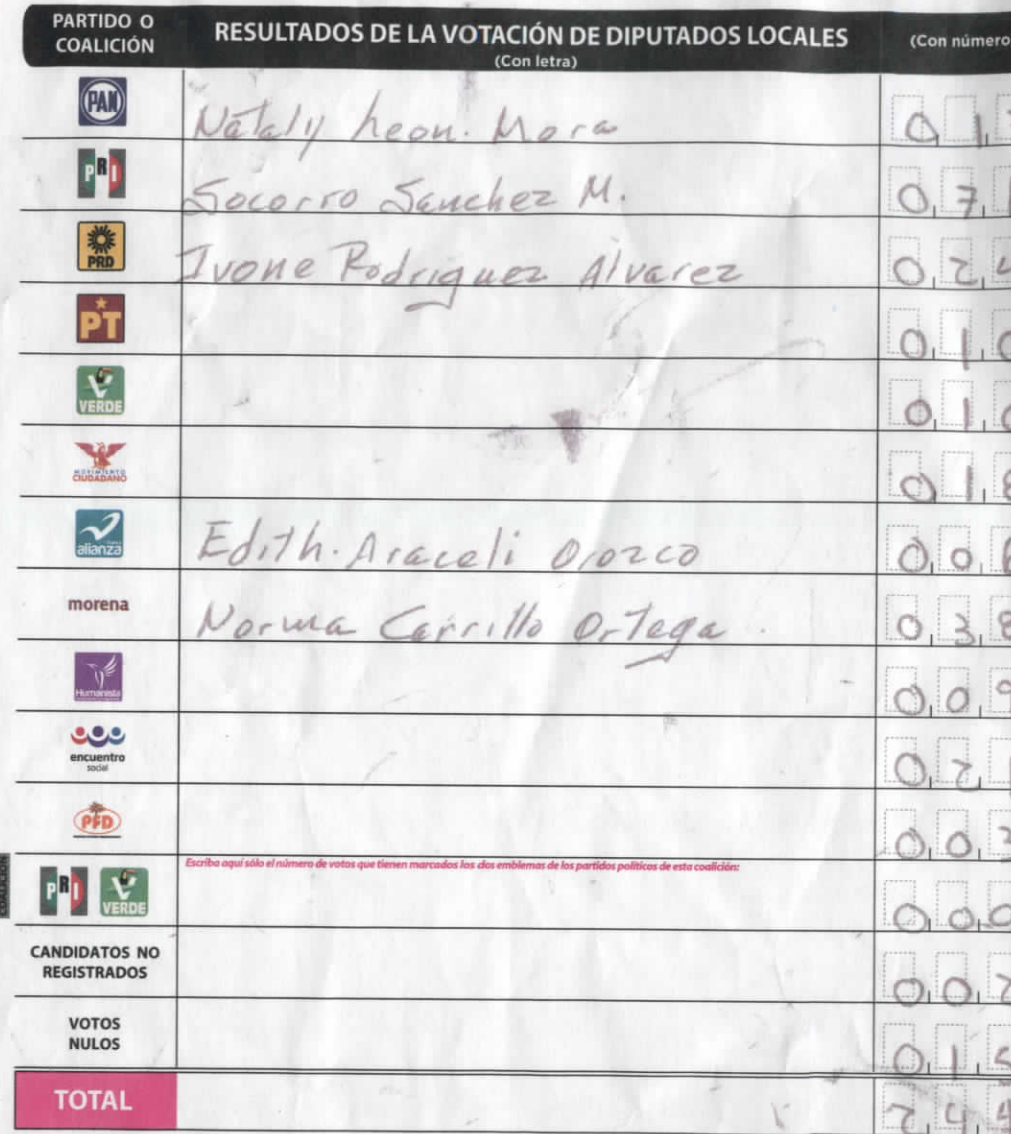 PARTIDO O COALICIÓN RESULTADOS DE LA VOTACIÓN DE DIPUTADOS LOCALES (Con letra) (Con número
PAN Nataly Leon. Mora 0 1
PRI Socorro Sanchez M. 0 7
PRD Ivone Rodriguez Alvarez 0 2 4
PT 0 1 0
VERDE 0 1
MOVIMIENTO CIUDADANO 0 1 8
alianza Edith. Araceli Orozco 0 0 6
morena Norma Carrillo Ortega. 0 3 8
Humanista 0 0 9
encuentro social 0 2
PFD 0 0
COALICIÓN
Escriba aquí sólo el número de votos que tienen marcados los dos emblemas de los partidos políticos de esta coalición:
PRI VERDE 0 0 0
CANDIDATOS NO REGISTRADOS 0 0 2
VOTOS NULOS 0 1 5
TOTAL 2 4 4